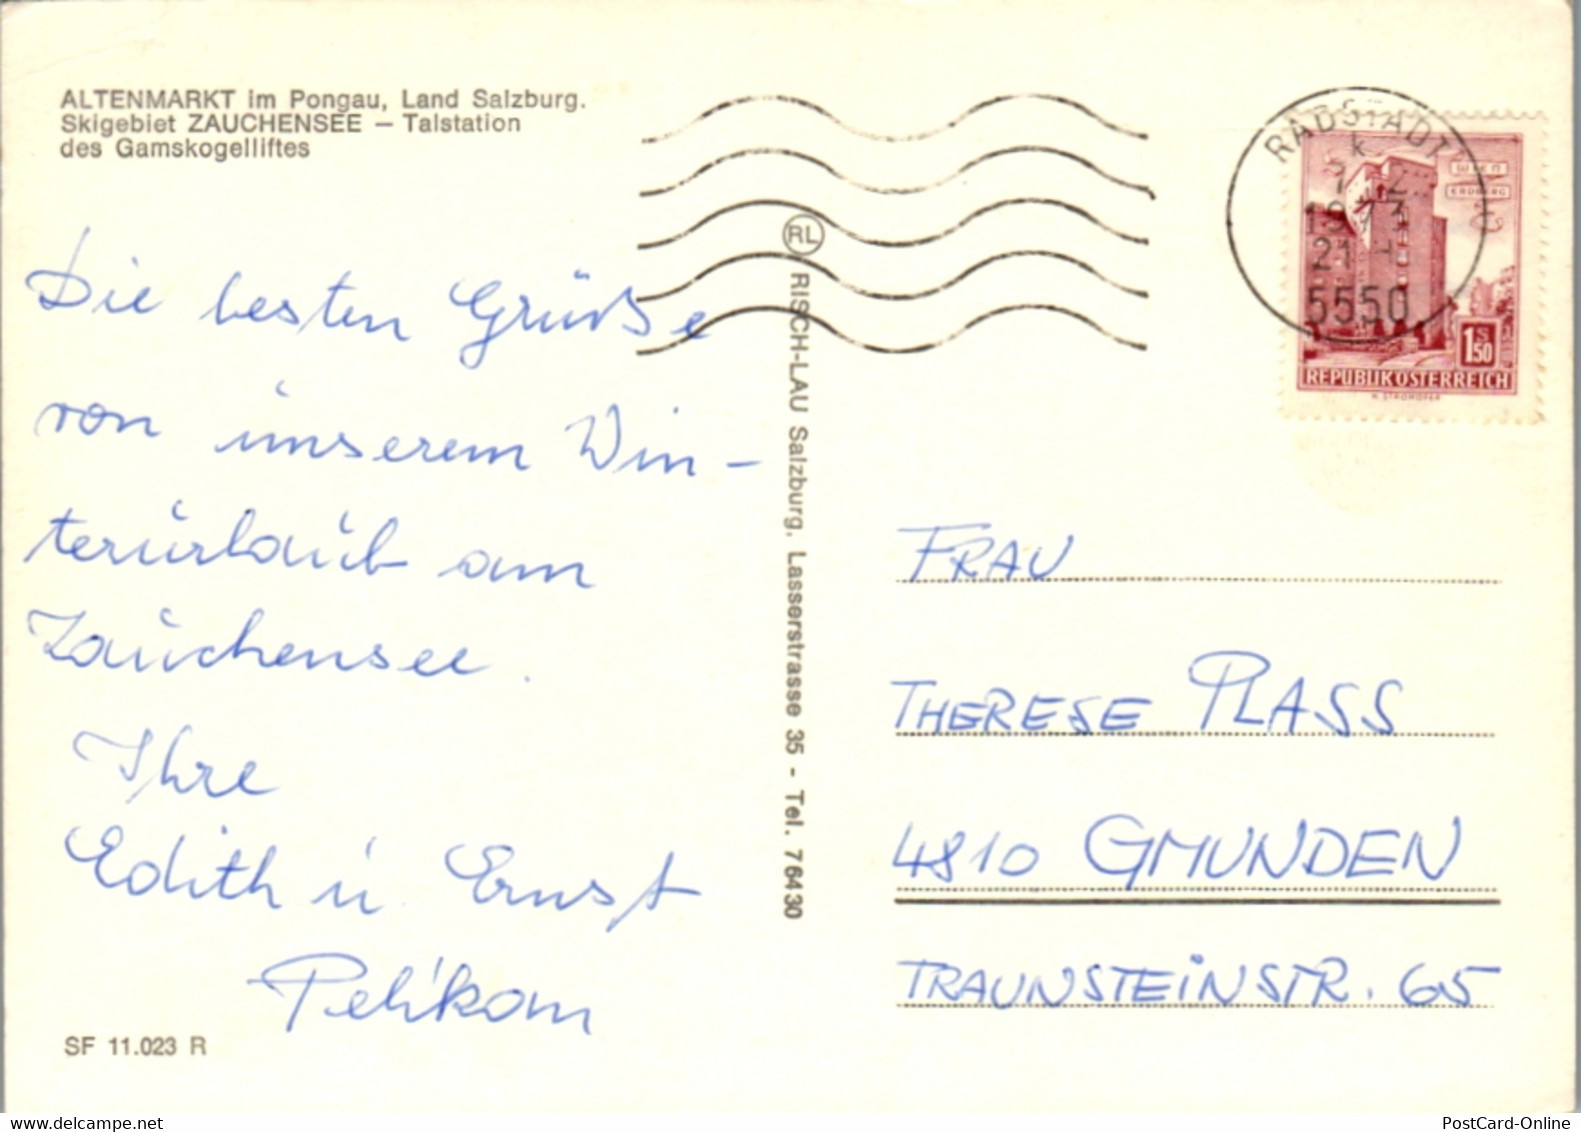 ALTENMARKT im Pongau, Land Salzburg.
Skigebiet ZAUCHENSEE — Talstation
des Gamskogelliftes
Die besten Grüße
von unserem Win-
terurlaub am
Zauchensee.
Ihre
Edith u. Ernst
Pelikan
SF 11.023 R
RL
RISCH-LAU Salzburg, Lasserstrasse 35 - Tel. 76430
RADSTADT
1973
21
5550
WIEN
ERDBERG
1 S 50
REPUBLIK ÖSTERREICH
FRAU
THERESE PLASS
4810 GMUNDEN
TRAUNSTEINSTR. 65
PostCard-Online